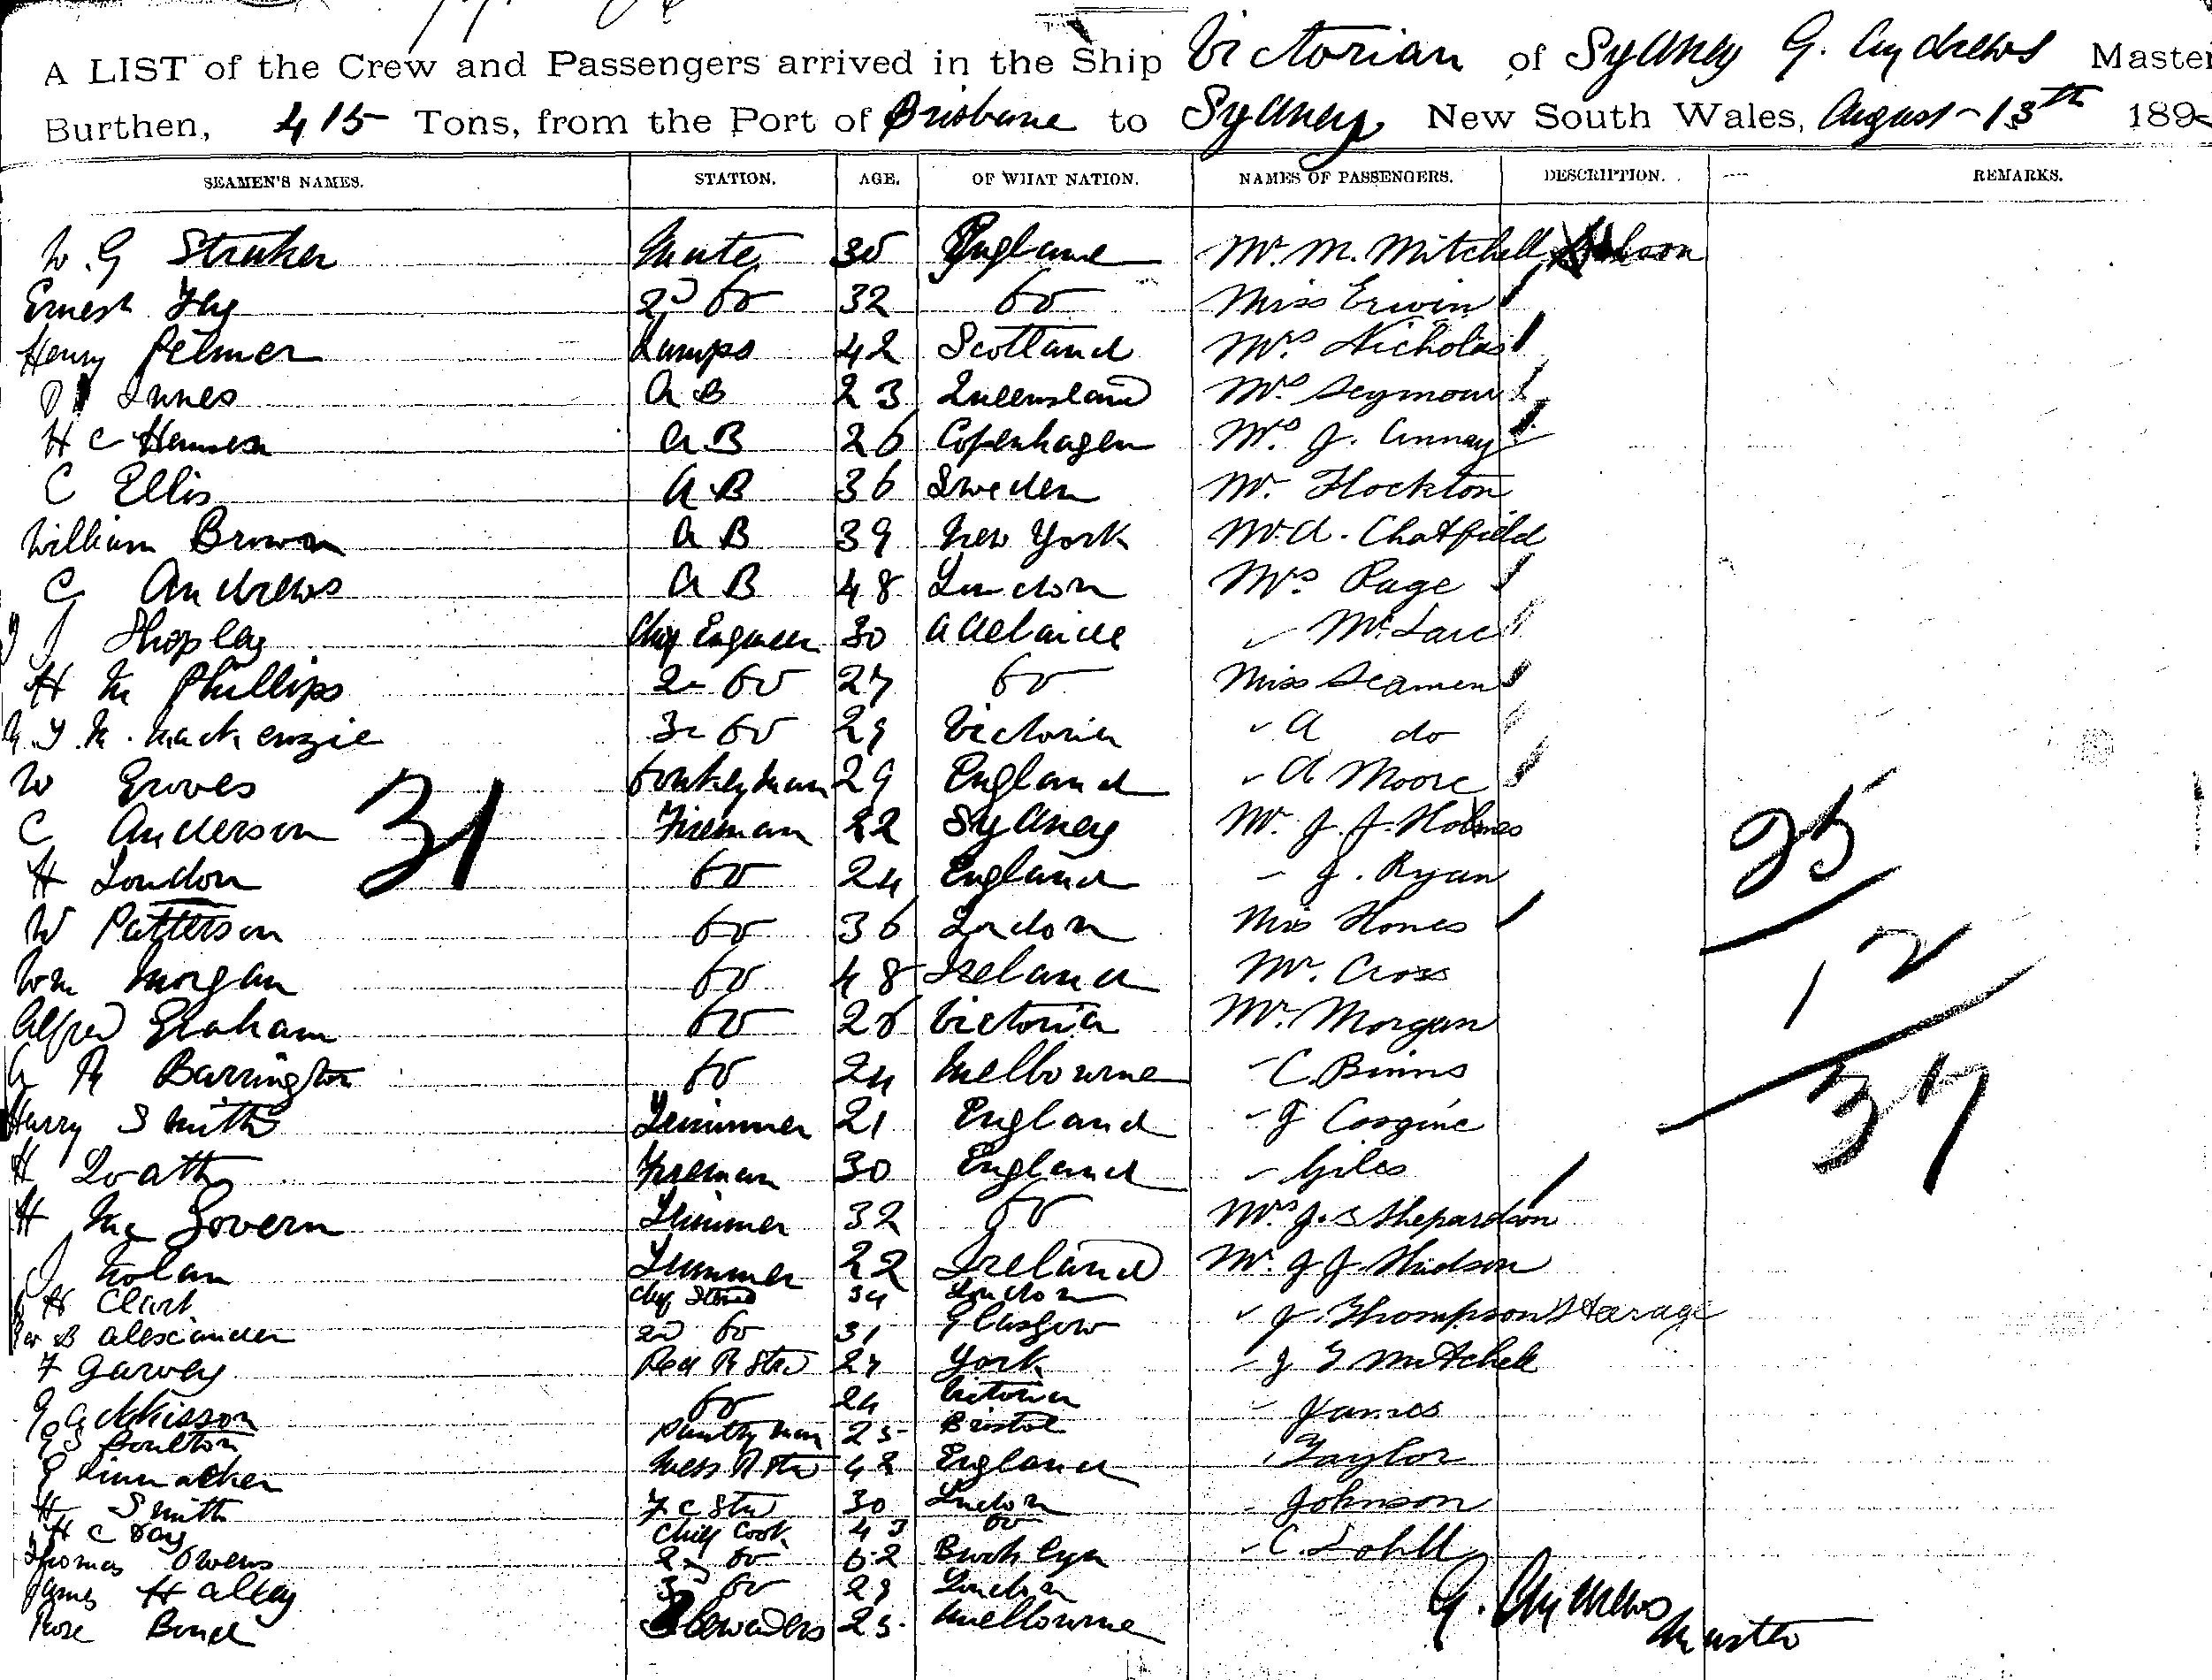 A LIST of the Crew and Passengers arrived in the Ship Victorian of Sydney G. Andrews Master
Burthen, 415 Tons, from the Port of Brisbane to Sydney, New South Wales, August 13th 189
SEAMEN'S NAMES. STATION. AGE. OF WHAT NATION. NAMES OF PASSENGERS. DESCRIPTION. REMARKS.
W. G Straker Mate 35 England Mr. M. Mitchell Saloon
Ernest 2nd Do 32 Do Miss Erwin
Henry Pelmer Lamps 42 Scotland Mrs Nicholas
Innes A B 23 Queensland Mrs Seymour
H C Hansen A B 26 Copenhagen Mrs J. Annay
C Ellis A B 36 Sweden Mr. Flockton
William Brown A B 39 New York Mr. A. Chatfield
G Andrews A B 48 London Mrs Page
J Shopley Chief Engineer 30 Adelaide
H M Phillips 2nd Do 27 Do Miss Seamen
MacKenzie 3rd Do 29 Victoria A do
W Groves Donkeyman 29 England A Moore
C Anderson Fireman 22 Sydney Mr. J. J. Holmes
31
25
H London Do 24 England J. Ryan
W Patterson Do 36 London Miss Hones
12
Wm Morgan Do 48 Ireland Mr. Cross
Alfred Graham Do 28 Victoria Mr. Morgan
37
Barrington Do 24 Melbourne C. Binns
Harry Smith Trimmer 21 England J
H Fireman 30 England Giles
H Mc Govern Trimmer 32 Do Mrs J. S Shepardson
J Nolan Trimmer 22 Ireland Mr. J J Hudson
H Clark Chief Steward 34 London J. Thompson Steerage
B Alexiander 2nd Do 31 Glasgow J T Mitchell
F Garvey 27 York James
Do 24 Victoria
G S Boulton Pantry man 25 Bristol Taylor
Mess R Std 42 England
H Smith F C Std 30 London Johnson
H C Day Chief Cook 43 Do
Thomas Owens 2nd Do 62 C.
James Halley 3rd Do 29 London G. Andrews
Rose Bond Stewardess 25 Melbourne Master